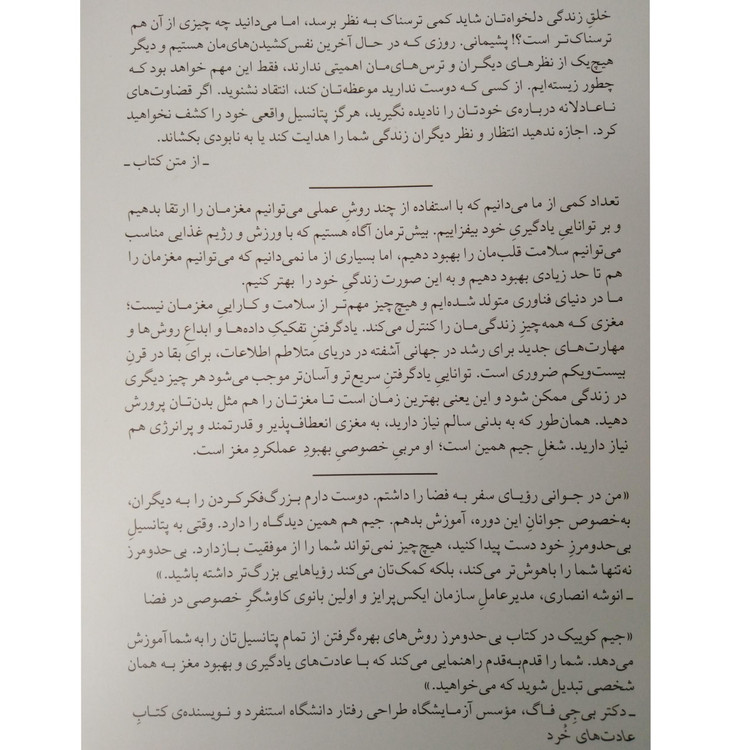 خلقِ زندگی دلخواه‌تـان شاید کمی ترسناک بـه نظر برسد، امـا می‌دانید چه چیزی از آن هم
ترسناک‌تـر است؟! پشیمانی. روزی کـه در حـال آخرین نفس‌کشیدن‌های‌مان هستیم و دیگر
هیچ‌یک از نظرهای دیگران و ترس‌های‌مان اهمیتی ندارند، فقط این مهم خواهد بود کـه
چطور زیسته‌ایم. از کسی کـه دوست نـدارید موعظه‌تـان کند، انتقاد نشنوید. اگر قضاوت‌های
ناعـادلانه درباره‌ی خودتـان را نادیده نگیرید، هرگز پتانسیل واقعی خود را کشف نخواهید
کرد. اجازه ندهید انتظار و نظر دیگران زندگی شما را هدایت کند یا به نابودی بکشاند.
ـ از متن کتاب ـ
تعداد کمی از ما می‌دانیم که با استفاده از چند روش عملی می‌توانیم مغزمـان را ارتقا بدهیم
و بر تواناییِ یادگیریِ خود بیفزاییم. بیش‌ترمان آگاه هستیم که با ورزش و رژیم غذایی مناسب
می‌توانیم سلامت قلب‌مان را بهبود دهیم، اما بسیاری از ما نمی‌دانیم که می‌توانیم مغزمان را
هم تا حد زیادی بهبود دهیم و به این صورت زندگیِ خود را بهتر کنیم.
ما در دنیای فناوری متولد شده‌ایم و هیچ‌چیز مهم‌تر از سلامت و کـارایی مغزمـان نیست؛
مغزی کـه همه‌چیزِ زندگی‌مـان را کنترل می‌کند. یادگرفتنِ تفکیکِ داده‌هـا و ابداع روش‌ها و
مهارت‌هـای جدید برای رشد در جهانی آشفته در دریای متلاطم اطلاعات، برای بقا در قرنِ
بیست‌ویکم ضروری است. تواناییِ یادگرفتنِ سریع‌تر و آسان‌تر موجب می‌شود هر چیز دیگری
در زندگی ممکن شود و این یعنی بهترین زمـان است تـا مغزتـان را هم مثل بدن‌تـان پرورش
دهید. همان‌طور که به بدنی سالم نیاز دارید، به مغزی انعطاف‌پذیر و قدرتمند و پرانرژی هم
نیاز دارید. شغلِ جیم همین است؛ او مربیِ خصوصیِ بهبودِ عملکردِ مغز است.
«من در جـوانی رؤیـای سفر بـه فضـا را داشتم. دوست دارم بزرگ‌فکرکـردن را بـه دیگران،
به‌خصوص جوانانِ این دوره، آموزش بدهم. جیم هم همین دیدگـاه را دارد. وقتی به پتانسیلِ
بی‌حدومرزِ خود دست پیدا کنید، هیچ‌چیز نمی‌تواند شما را از موفقیت بـازدارد. بی‌حدومرز
نه‌تنها شما را باهوش‌تر می‌کند، بلکه کمک‌تان می‌کند رؤیاهایی بزرگ‌تر داشته باشید.»
ـ انوشه انصاری، مدیرعاملِ سازمان ایکس‌پرایز و اولین بانوی کاوشگرِ خصوصی در فضا
«جیم کوییک در کتاب بی‌حدومرز روش‌های بهره‌گرفتن از تمام پتانسیل‌تان را به شما آموزش
می‌دهد. شما را قدم‌به‌قدم راهنمایی می‌کند که بـا عادت‌های یادگیری و بهبود مغز به همان
شخصی تبدیل شوید که می‌خواهید.»
ـ دکتر بی‌جِی فـاگ، مؤسس آزمـایشگاه طراحی رفتار دانشگاه استنفرد و نویسنده‌ی کتـابِ
عادت‌های خُرد